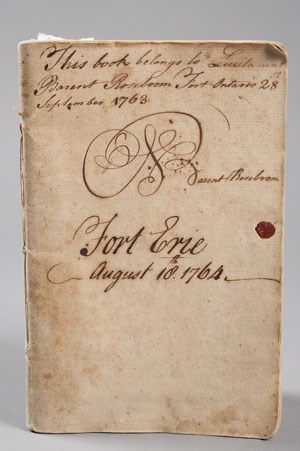 This book belongs to Lieutenant
Barent Roseboom Fort Ontario 28th
September 1763
Barent Roseboom
Fort Erie
August 18th 1764